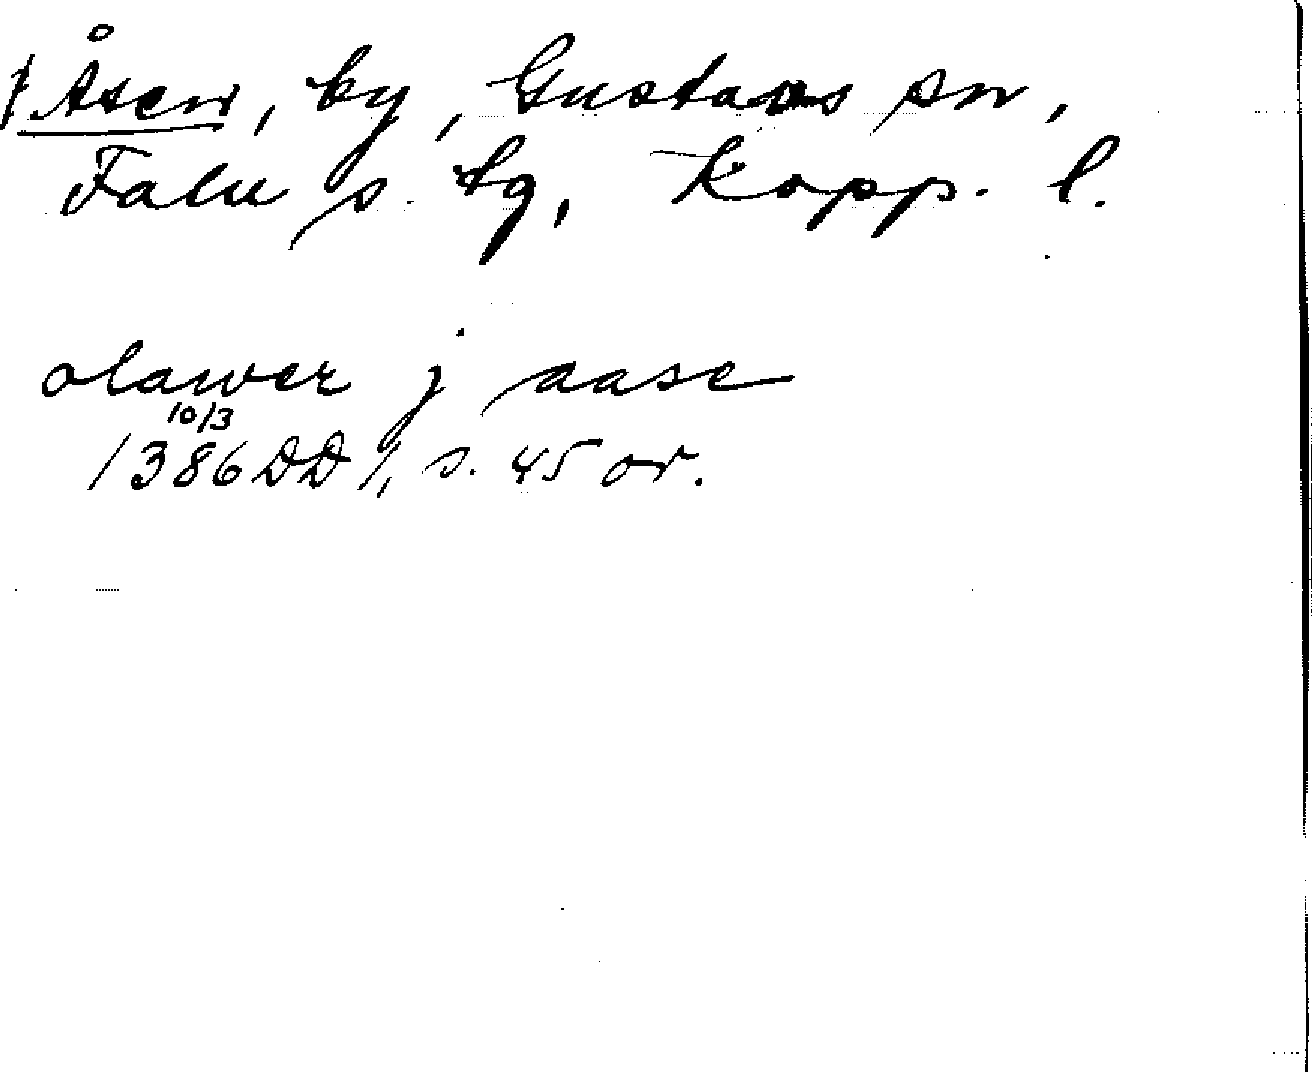 Åsen, by, Gustavs sn,
Falu s. bg, Kopp. l.
olawer j aase
10/3
1386 DD 1, s. 45 or.